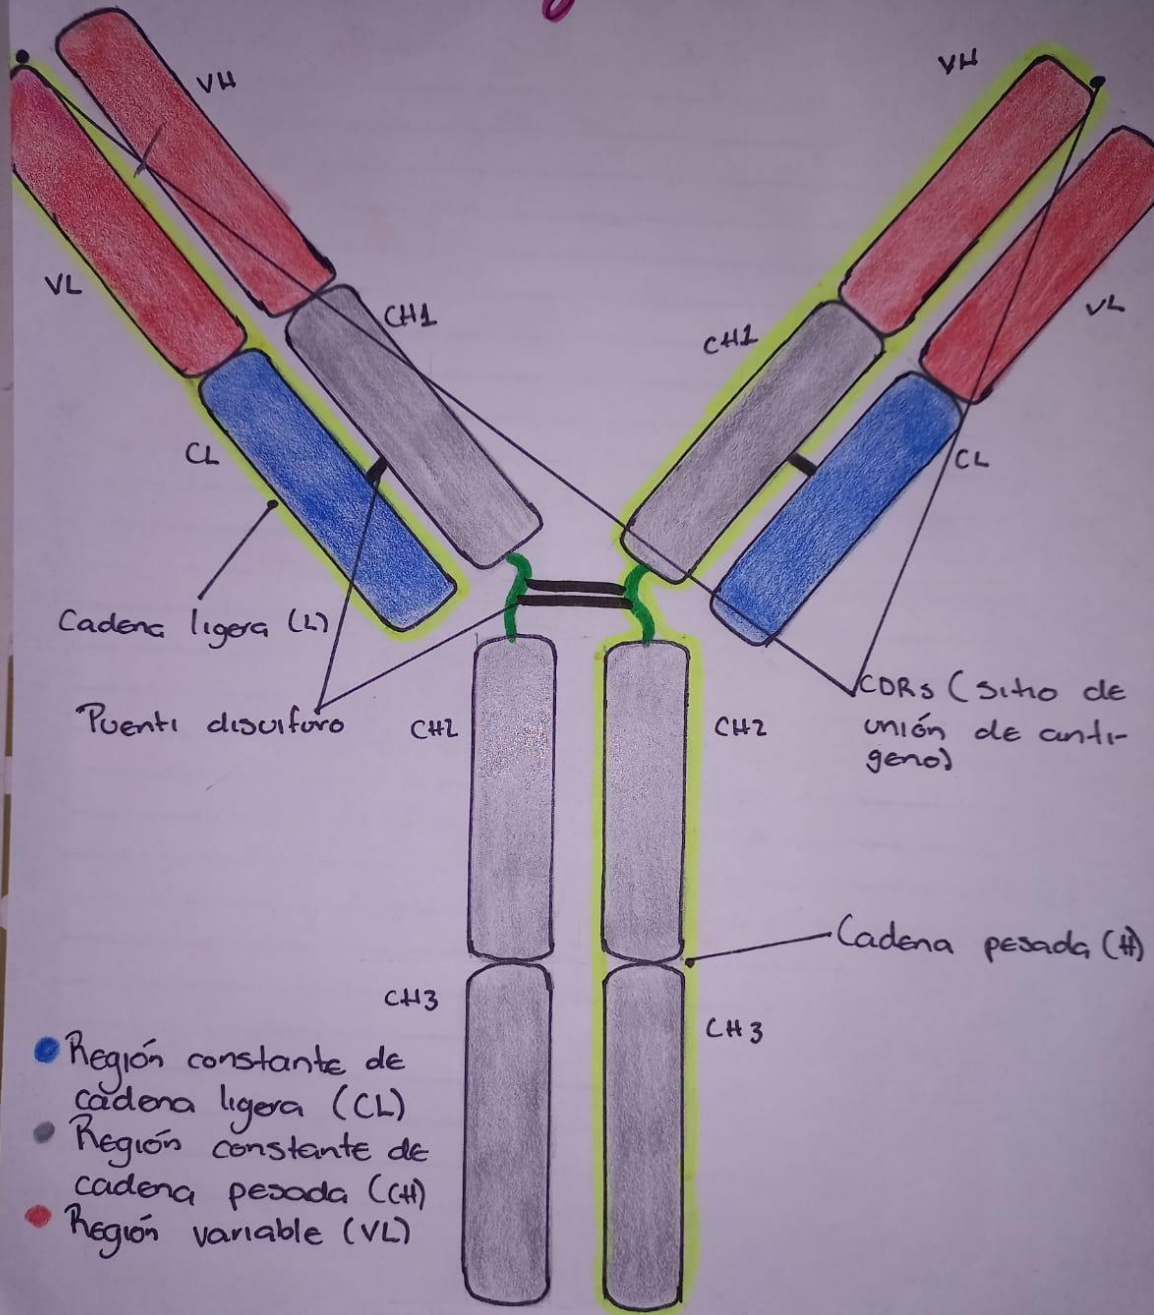 VH
VH
VL
VL
CH1
CH1
CL
CL
Cadena ligera (L)
Puenti disulfuro
CH2
CH2
CDRs (sitio de
unión de anti-
geno)
Cadena pesada (H)
CH3
CH3
Región constante de
cadena ligera (CL)
Región constante de
cadena pesada (CH)
Región variable (VL)